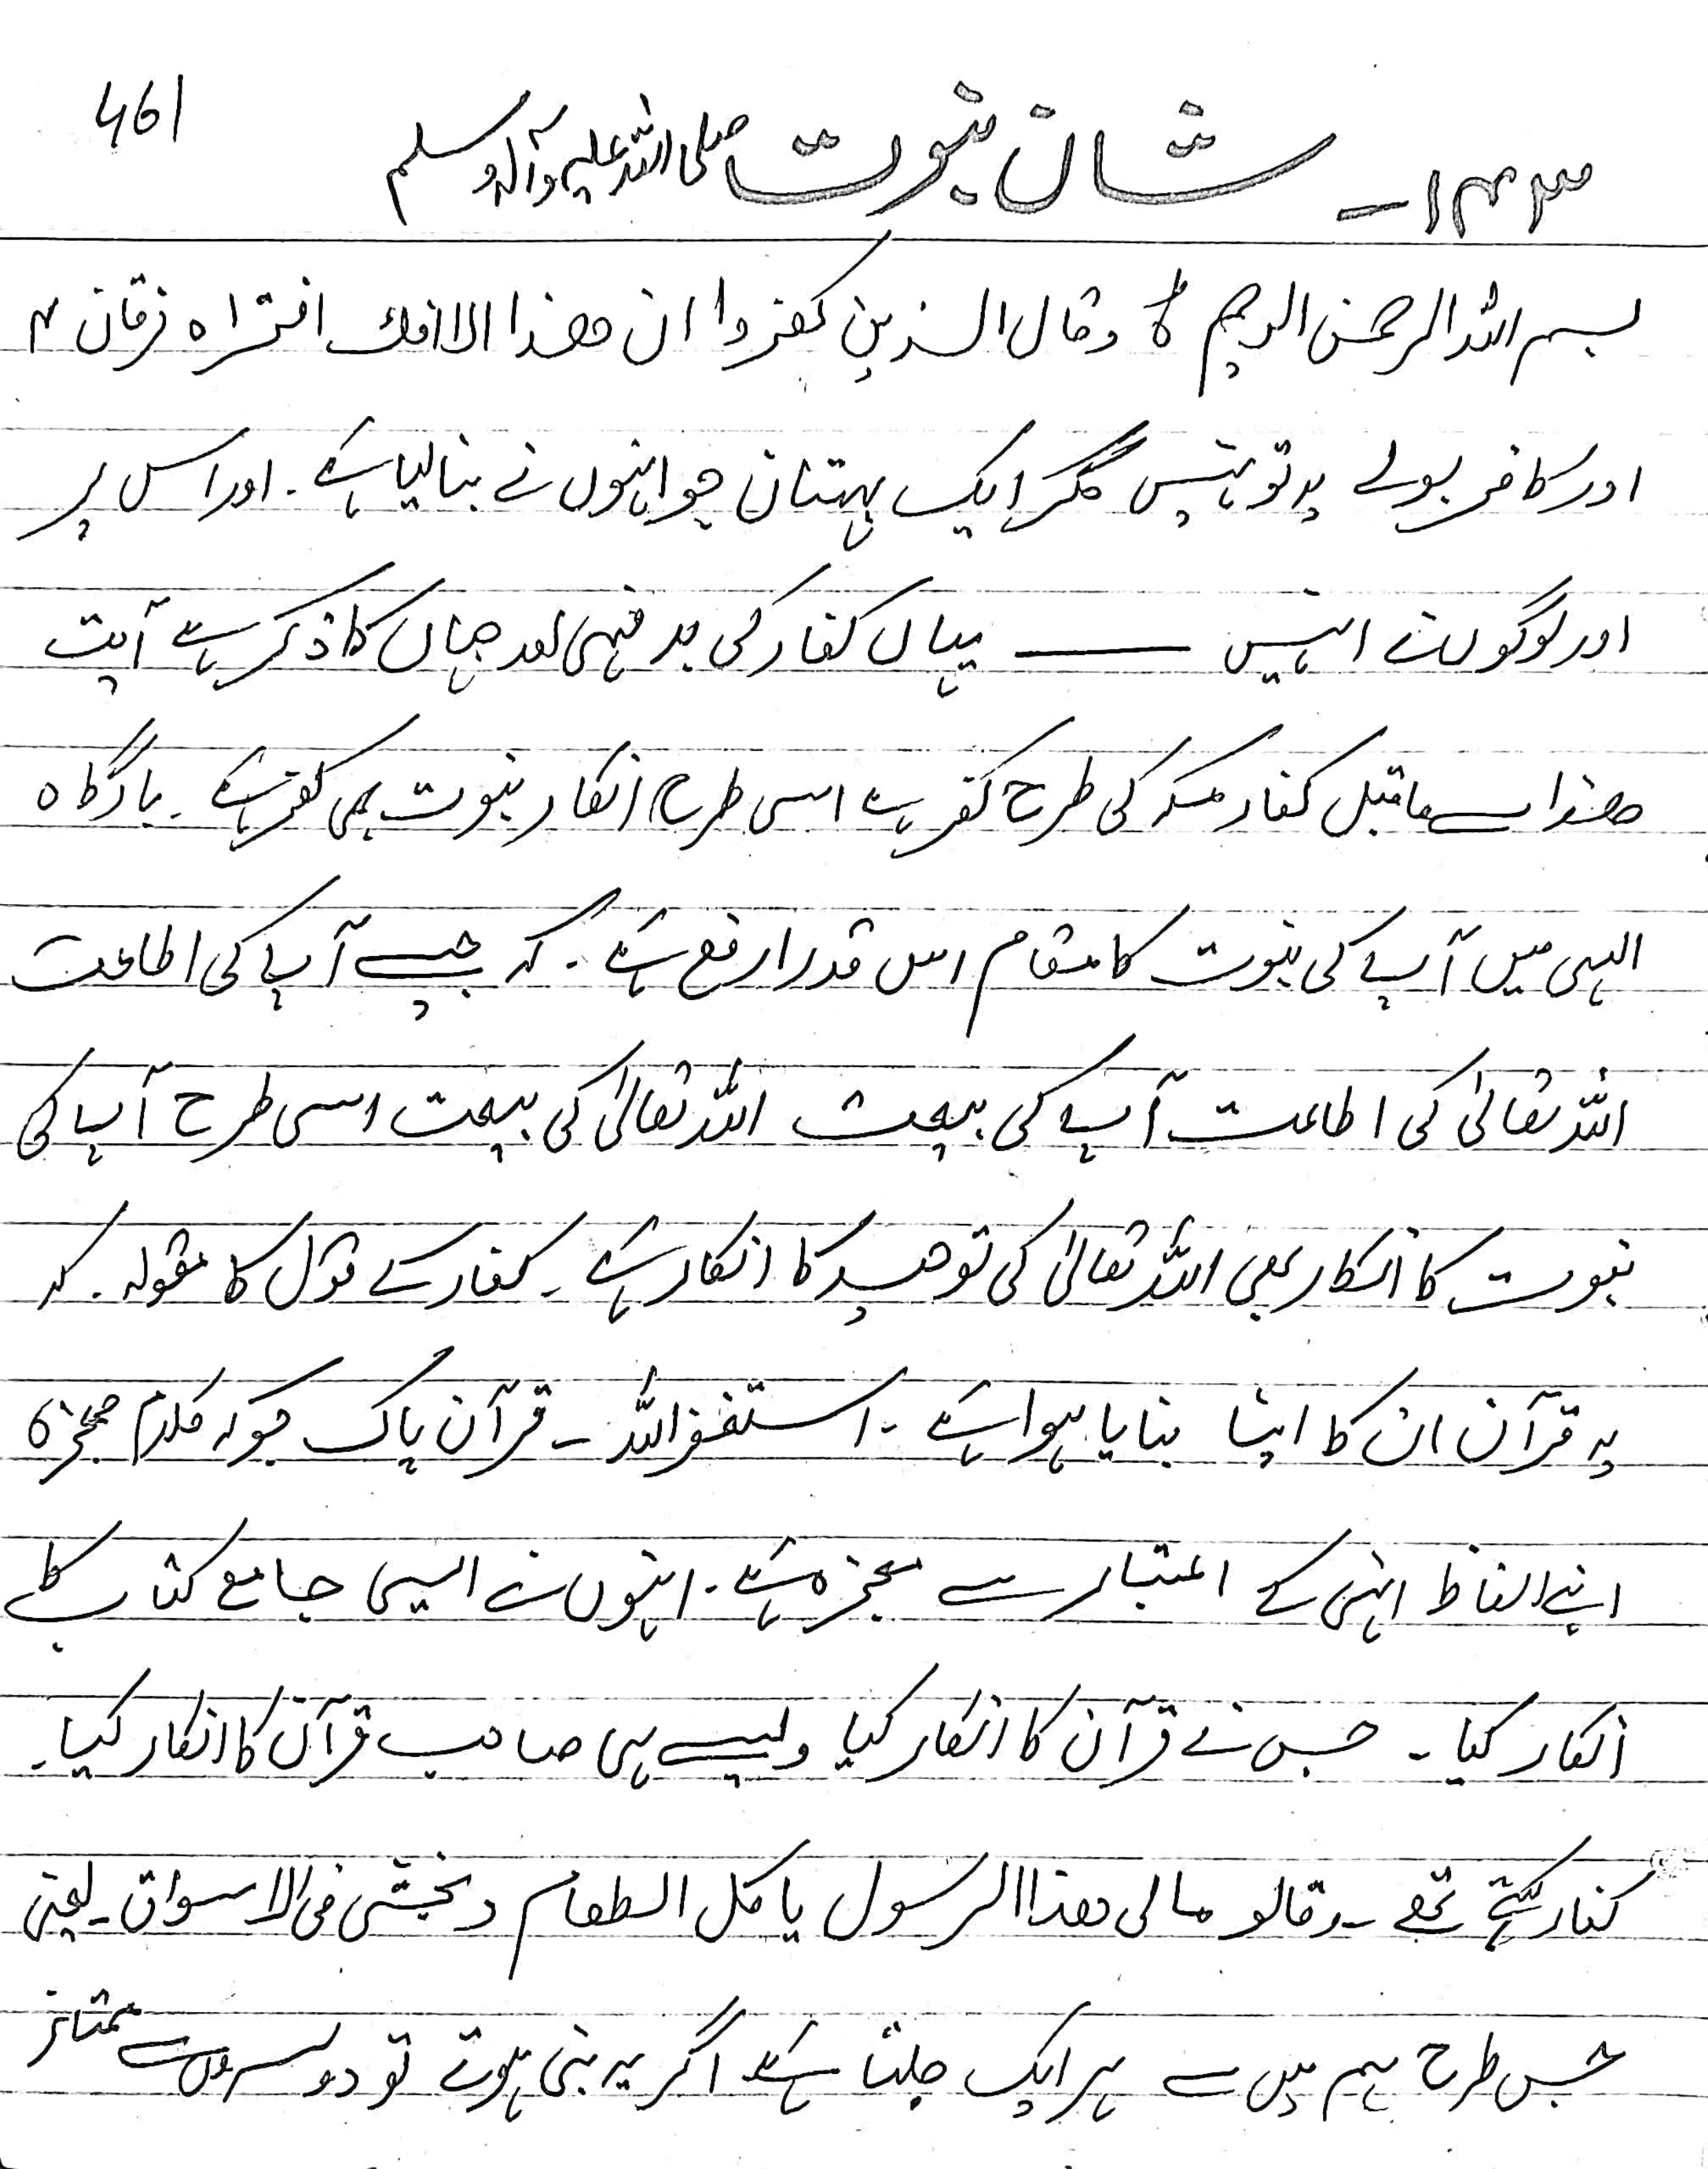 461
۱۴۳ - شان نبوت صلی اللہ علیہ وآلہ وسلم
بسم اللہ الرحمن الرحیم ط وقال الذین کفروا ان ھذا الا افک افتراہ فرقان ۴
اور کافر بولے یہ تو نہیں مگر ایک بہتان جو انہوں نے بنا لیا ہے۔ اور اس پر
اور لوگوں نے انہیں —— یہاں کفار کی بد فہمی اور جہاں کا ذکر ہے آیت
ھذا سے ماقبل کفار مکہ کی طرح کفر ہے اسی طرح انکار نبوت بھی کفر ہے۔ بارگاہ
الہی میں آپ کی نبوت کا مقام اس قدر ارفع ہے۔ کہ جیسے آپ کی اطاعت
اللہ تعالیٰ کی اطاعت آپ کی بیعت اللہ تعالیٰ کی بیعت اسی طرح آپ کی
نبوت کا انکار بھی اللہ تعالیٰ کی توحید کا انکار ہے۔ کفار کے قول کا مقولہ۔ کہ
یہ قرآن ان کا اپنا بنایا ہوا ہے۔ استغفراللہ۔ قرآن پاک جو کہ کلام معجزہ
اپنے الفاظ کے اعتبار سے معجزہ ہے۔ انہوں نے ایسی جامع کتاب کا
انکار کیا۔ جس نے قرآن کا انکار کیا ویسے ہی صاحب قرآن کا انکار کیا۔
کفار کہتے تھے۔ وقالو مالی ھذا الرسول یا کل الطعام و یمشی فی الاسواق۔ یعنی
جس طرح ہم میں سے ہر ایک چلتا ہے اگر یہ نبی ہوتے تو دوسروں سے ممتاز